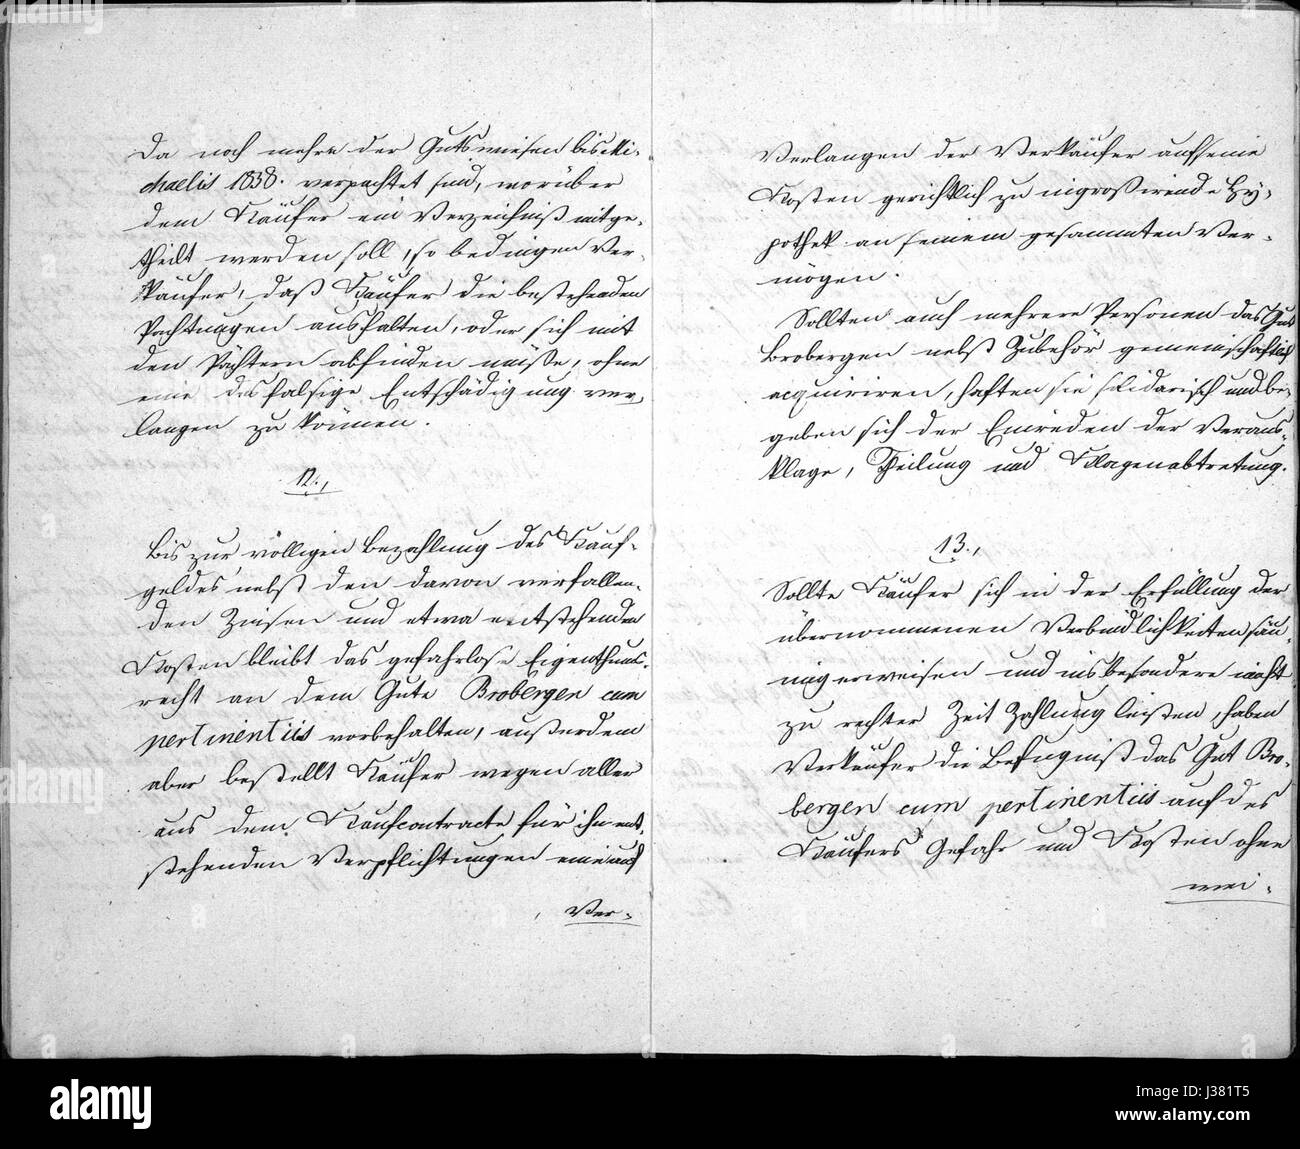 Da noch mehre der Gutswiesen bis Mi-
chaelis 1838. verpachtet sind, worüber
dem Käufer ein Verzeichniß mitge-
theilt werden soll, so bedingen Ver-
käufer, daß Käufer die bestehenden
Pachtungen aushalten, oder sich mit
den Pächtern abfinden müsse, ohne
eine desfalsige Entschädigung ver-
langen zu können.
12.,
Bis zur völligen Bezahlung des Kauf-
geldes nebst den davon verfallen-
den Zinsen und etwa entstehenden
Kosten bleibt das gefahrlose Eigenthums-
recht an dem Gute Brobergen cum
pertinentiis vorbehalten, außerdem
aber bestellt Käufer wegen aller
aus dem Kaufcontracte für ihn ent-
stehenden Verpflichtungen eine auf
Ver-
Verlangen der Verkäufer auf seine
Kosten gerichtlich zu ingroßirende Hy-
pothek an seinem gesammten Ver-
mögen.
Sollten auch mehrere Personen das Gut
Brobergen nebst Zubehör gemeinschaftlich
acquiriren, haften sie solidarisch und be-
geben sich der Einreden der Voraus-
klage, Theilung und Klagenabtretung.
13.,
Sollte Käufer sich in der Erfüllung der
übernommenen Verbindlichkeiten säu-
mig erweisen und insbesondere nicht
zu rechter Zeit Zahlung leisten, haben
Verkäufer die Befugniß das Gut Bro-
bergen cum pertinentiis auf des
Käufers Gefahr und Kosten ohne
wei-
alamy
J381T5